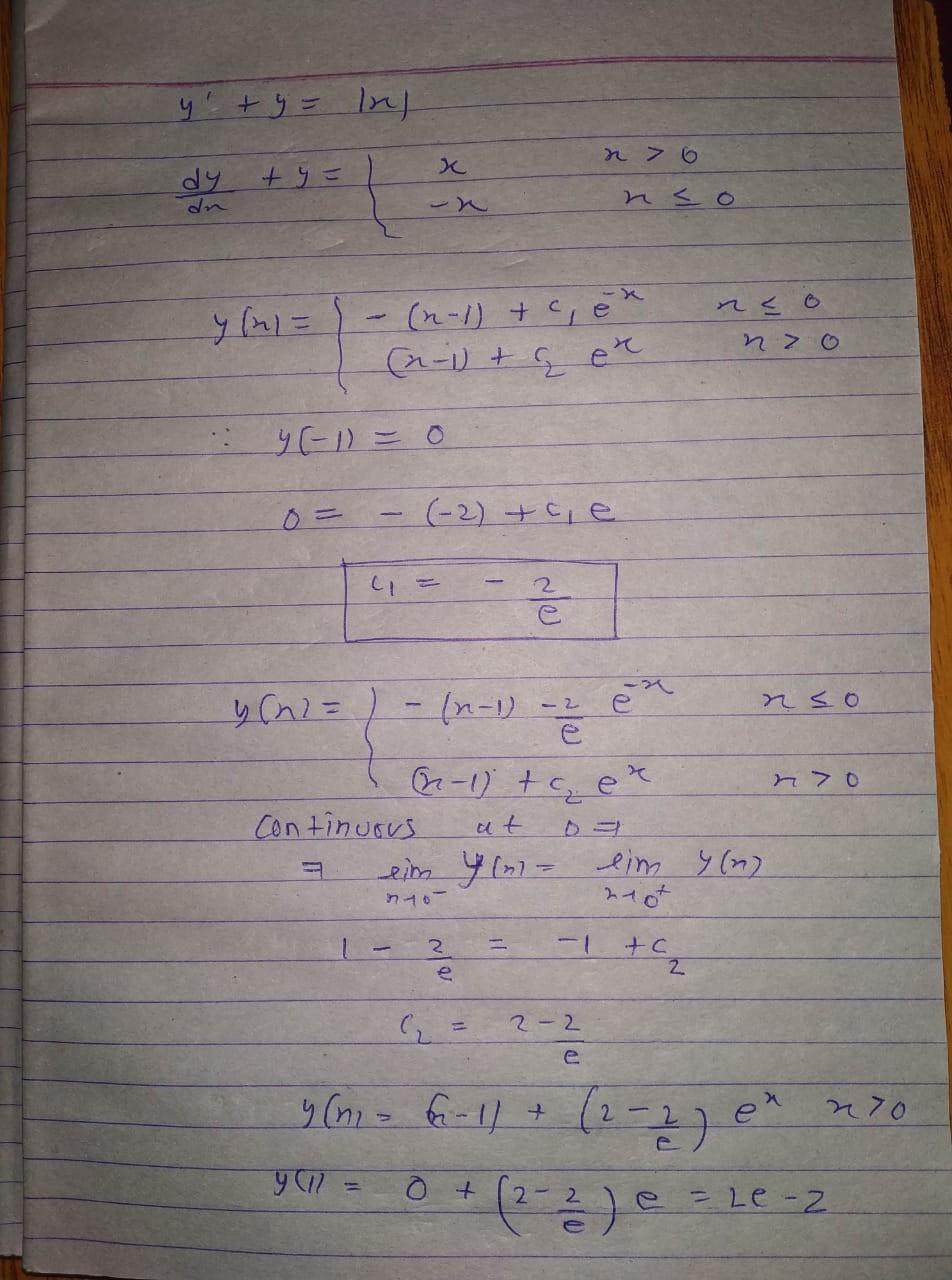 y' + y = |x|
dy/dx + y = { x    x > 0
-x    x ≤ 0
y(x) = { - (x-1) + c₁ e⁻ˣ    x ≤ 0
(x-1) + c₂ eˣ    x > 0
∵ y(-1) = 0
0 = - (-2) + c₁ e
c₁ = - 2/e
y(x) = { - (x-1) - 2/e e⁻ˣ    x ≤ 0
(x-1) + c₂ eˣ    x > 0
Continuous at 0 ⇒
⇒ lim x→0⁻ y(x) = lim x→0⁺ y(x)
1 - 2/e = -1 + c₂
c₂ = 2 - 2/e
y(x) = (x-1) + (2 - 2/e) eˣ    x > 0
y(1) = 0 + (2 - 2/e) e = 2e - 2